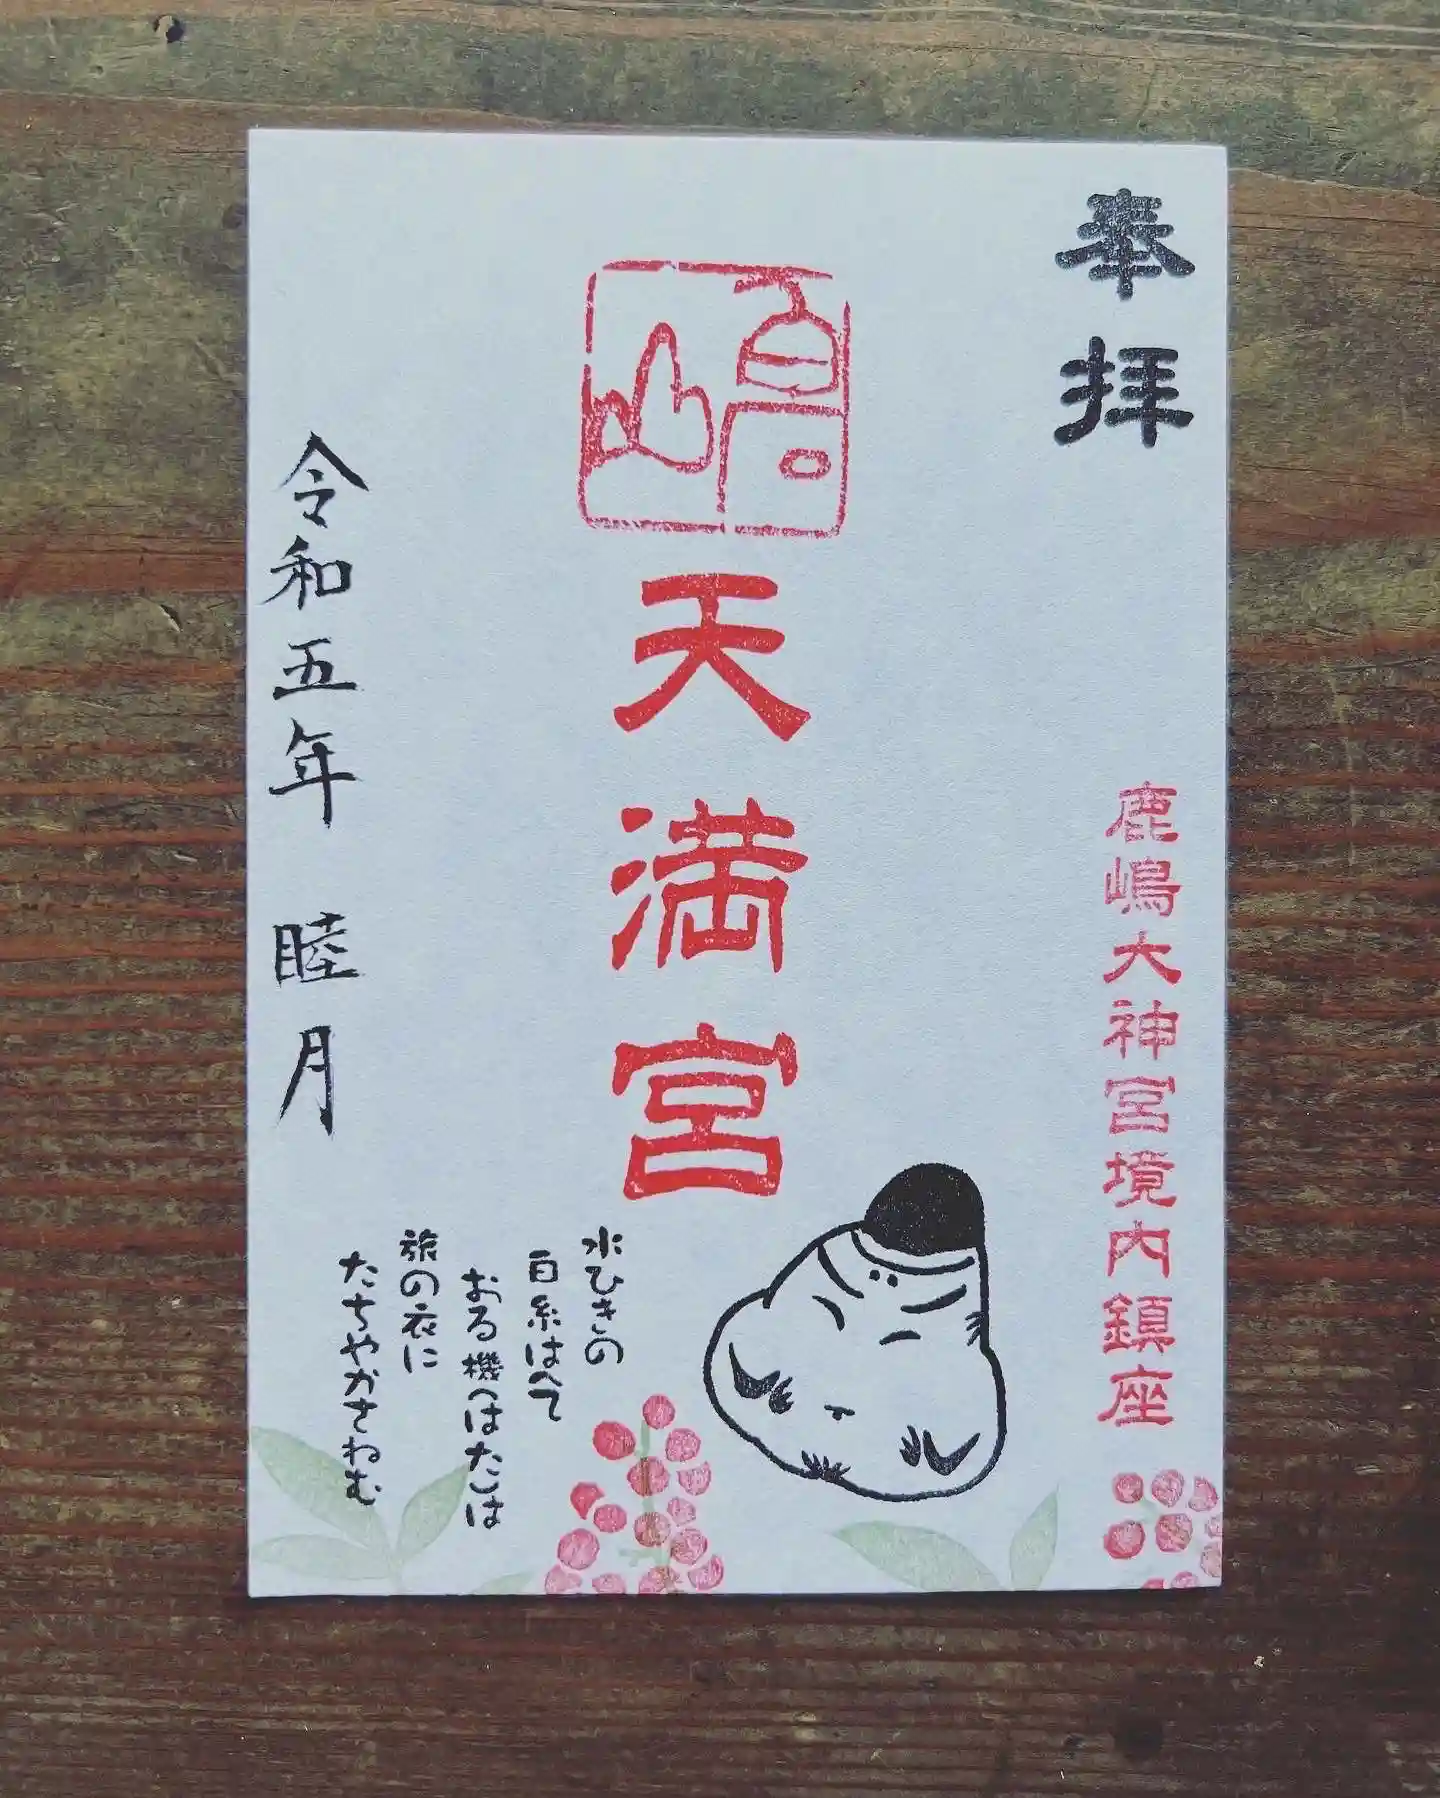 奉拝
鹿嶋大神宮境内鎮座
天満宮
水ひきの
白糸はへて
おる機はたは
旅の衣に
たちやかさねむ
令和五年 睦月